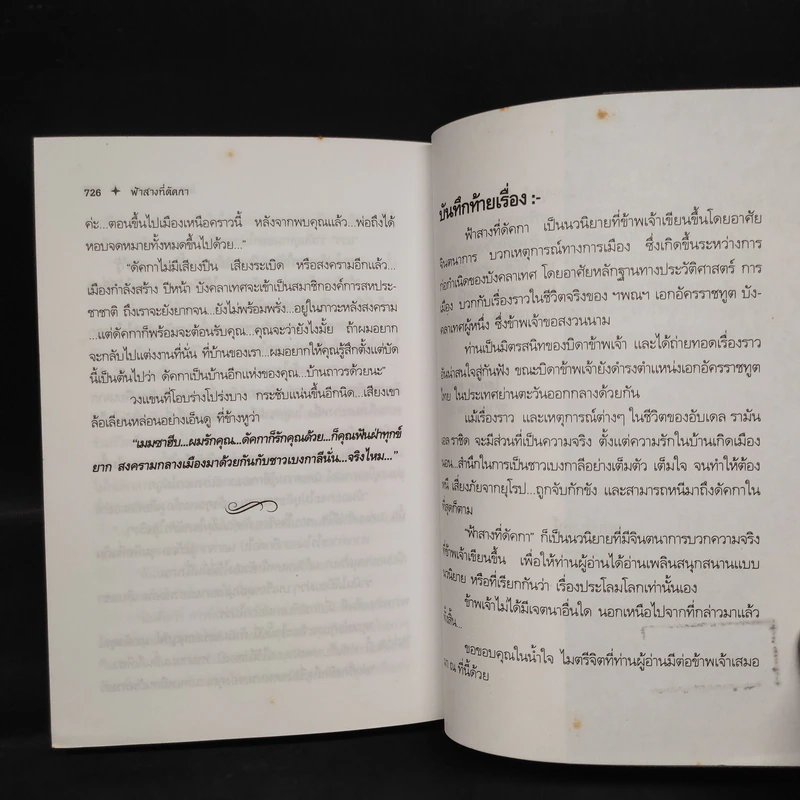 726 ✦ ฟ้าสางที่ดัคกา
ค่ะ...ตอนขึ้นไปเมืองเหนือคราวนี้ หลังจากพบคุณแล้ว...พ่อถึงได้
หอบจดหมายทั้งหมดขึ้นไปด้วย..."
"ดัคกาไม่มีเสียงปืน เสียงระเบิด หรือสงครามอีกแล้ว...
เมืองกำลังสร้าง ปีหน้า บังคลาเทศจะเข้าเป็นสมาชิกองค์การสหประ-
ชาชาติ ถึงเราจะยังยากจน...ยังไม่พร้อมพรั่ง...อยู่ในภาวะหลังสงคราม
...แต่ดัคกาก็พร้อมจะต้อนรับคุณ...คุณจะว่ายังไงมั้ย ถ้าผมอยาก
จะกลับไปแต่งงานที่นั่น ที่บ้านของเรา...ผมอยากให้คุณรู้สึกตั้งแต่บัด
นี้เป็นต้นไปว่า ดัคกาเป็นบ้านอีกแห่งของคุณ...บ้านถาวรด้วยนะ"
วงแขนที่โอบร่างโปร่งบาง กระชับแน่นขึ้นอีกนิด...เสียงเขา
ล้อเลียนหล่อนอย่างเอ็นดู ที่ข้างหูว่า
"เมมซาฮีบ...ผมรักคุณ...ดัคกาก็รักคุณด้วย...ก็คุณฟันฝ่าทุกข์
ยาก สงครามกลางเมืองมาด้วยกันกับชาวเบงกาลีนั่น...จริงไหม..."
บันทึกท้ายเรื่อง :-
ฟ้าสางที่ดัคกา เป็นนวนิยายที่ข้าพเจ้าเขียนขึ้นโดยอาศัย
จินตนาการ บวกเหตุการณ์ทางการเมือง ซึ่งเกิดขึ้นระหว่างการ
ก่อกำเนิดของบังคลาเทศ โดยอาศัยหลักฐานทางประวัติศาสตร์ การ
เมือง บวกกับเรื่องราวในชีวิตจริงของ ฯพณฯ เอกอัครราชทูต บัง-
คลาเทศผู้หนึ่ง ซึ่งข้าพเจ้าขอสงวนนาม
ท่านเป็นมิตรสนิทของบิดาข้าพเจ้า และได้ถ่ายทอดเรื่องราว
อันน่าสนใจสู่กันฟัง ขณะบิดาข้าพเจ้ายังดำรงตำแหน่งเอกอัครราชทูต
ไทย ในประเทศย่านตะวันออกกลางด้วยกัน
แม้เรื่องราว และเหตุการณ์ต่างๆ ในชีวิตของอับเดล รามัน
เอล ราชิด จะมีส่วนที่เป็นความจริง ตั้งแต่ความรักในบ้านเกิดเมือง
นอน...สำนึกในการเป็นชาวเบงกาลีอย่างเต็มตัว เต็มใจ จนทำให้ต้อง
หนี เสี่ยงภัยจากยุโรป...ถูกจับกักขัง และสามารถหนีมาถึงดัคกาใน
ที่สุดก็ตาม
"ฟ้าสางที่ดัคกา" ก็เป็นนวนิยายที่มีจินตนาการบวกความจริง
ที่ข้าพเจ้าเขียนขึ้น เพื่อให้ท่านผู้อ่านได้อ่านเพลินสนุกสนานแบบ
นวนิยาย หรือที่เรียกกันว่า เรื่องประโลมโลกเท่านั้นเอง
ข้าพเจ้าไม่ได้มีเจตนาอื่นใด นอกเหนือไปจากที่กล่าวมาแล้ว
ทั้งสิ้น...
ขอขอบคุณในน้ำใจ ไมตรีจิตที่ท่านผู้อ่านมีต่อข้าพเจ้าเสมอ
มา ณ ที่นี้ด้วย